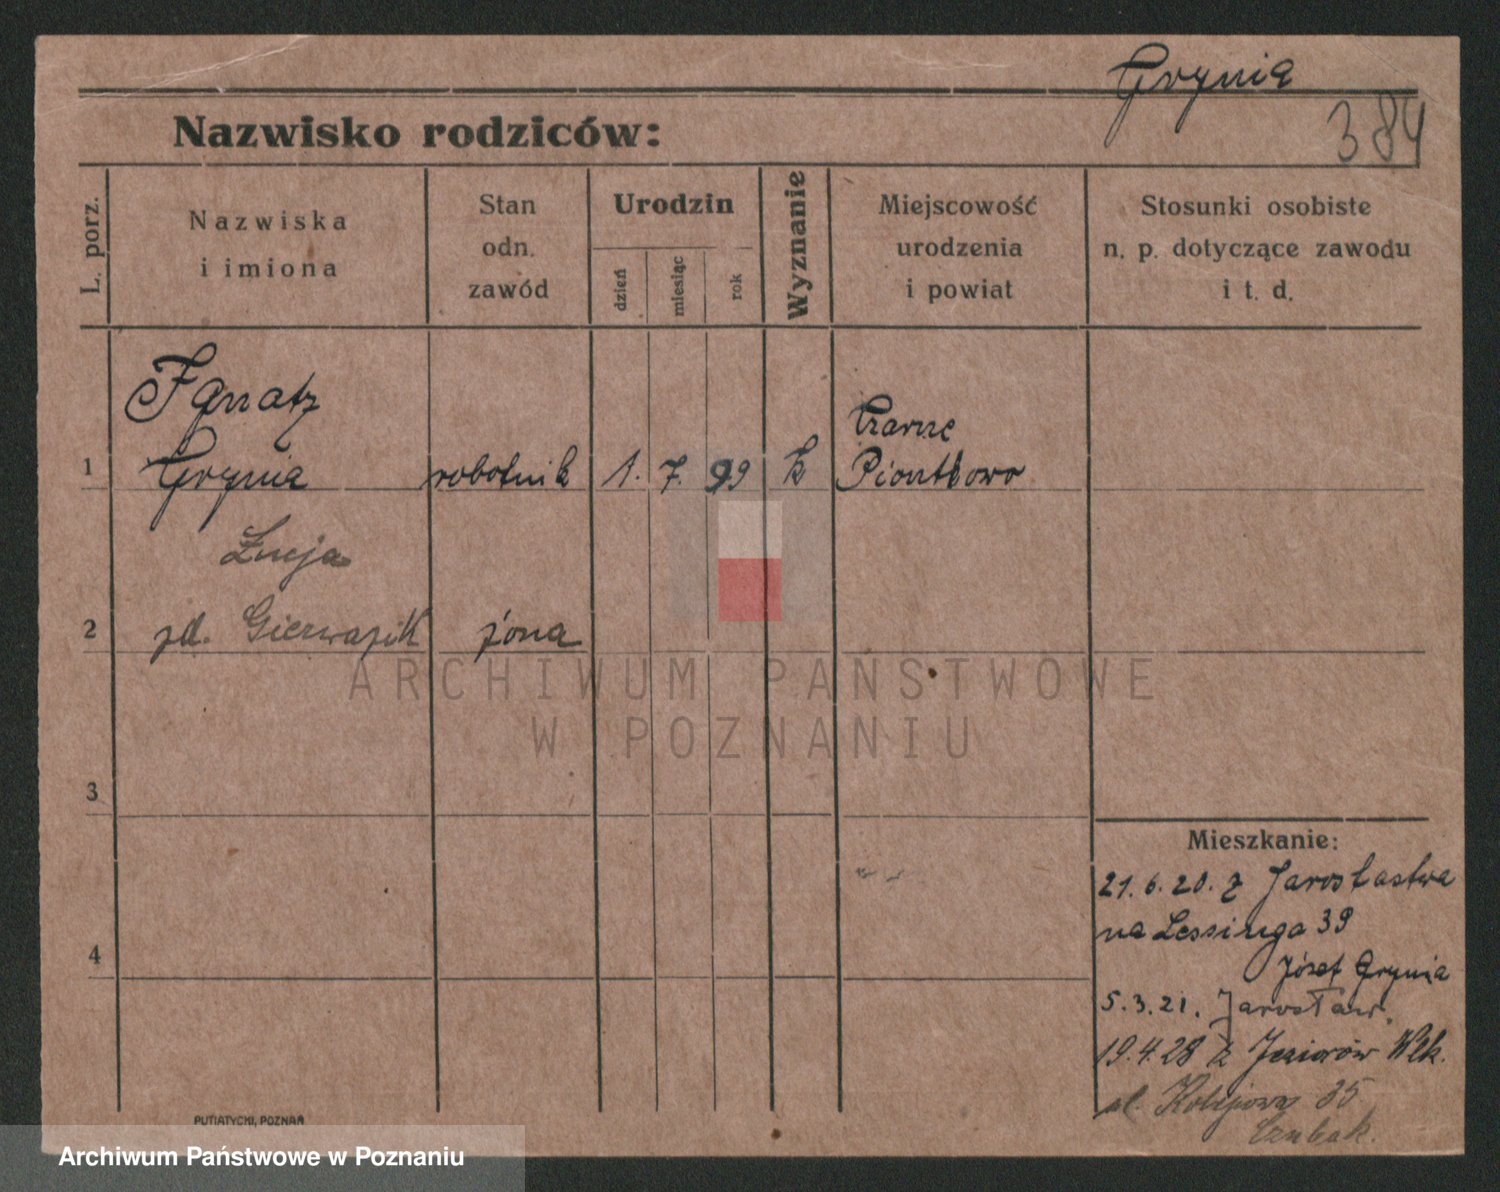 Grynia
384
Nazwisko rodziców:
L. porz.
Nazwiska
i imiona
Stan
odn.
zawód
Urodzin
dzień
miesiąc
rok
Wyznanie
Miejscowość
urodzenia
i powiat
Stosunki osobiste
n. p. dotyczące zawodu
i t. d.
Ignatz
1 Grynia robotnik 1. 7. 99 k
Czarne
Piontkowo
Łucja
2 zd. Gierwazik żona
3
4
Mieszkanie:
21.6.20. z Jarosławia
na Lessinga 39
Józef Grynia
5.3.21. Jarosław.
19.4.28 z Jeziorów Wlk.
ul. Kolejowa 35
Czubak.
PUTIATYCKI, POZNAŃ
ARCHIWUM PAŃSTWOWE
W POZNANIU
Archiwum Państwowe w Poznaniu